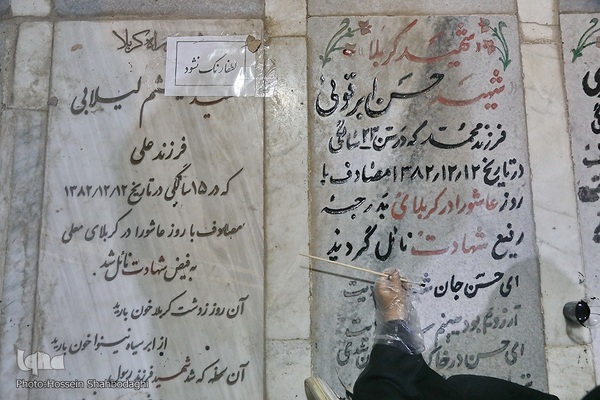 شهید کربلا
شهید حسن ابرقوئی
فرزند محمد که در سن ۲۳ سالگی
در تاریخ ۱۳۸۲/۱۲/۱۲ مصادف با
روز عاشورا در کربلای بدرجه
رفیع شهادت نائل گردید
ای حسن جان
آرزویم بود بینم
ای حسن در خاک
کربلا
لطفا رنگ نشود
لیلابی
فرزند علی
که در ۱۵ سالگی در تاریخ ۱۳۸۲/۱۲/۱۲
مصادف با روز عاشورا در کربلای معلی
به فیض شهادت نائل شد
آن روز زدشت کربلا خون بارید
از ابر سیاه نینوا خون بارید
آن لحظه که شد شهید فرزند رسول
iqna
Photo:Hossein Shahbodaghi